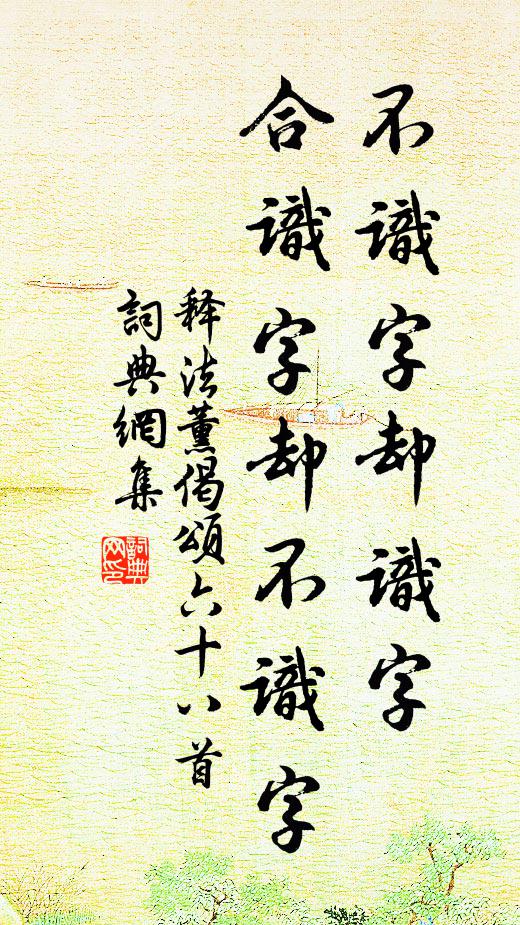 不識字却識字
合識字却不識字
释法薰偈頌六十八首
詞典網集
詞典
网印